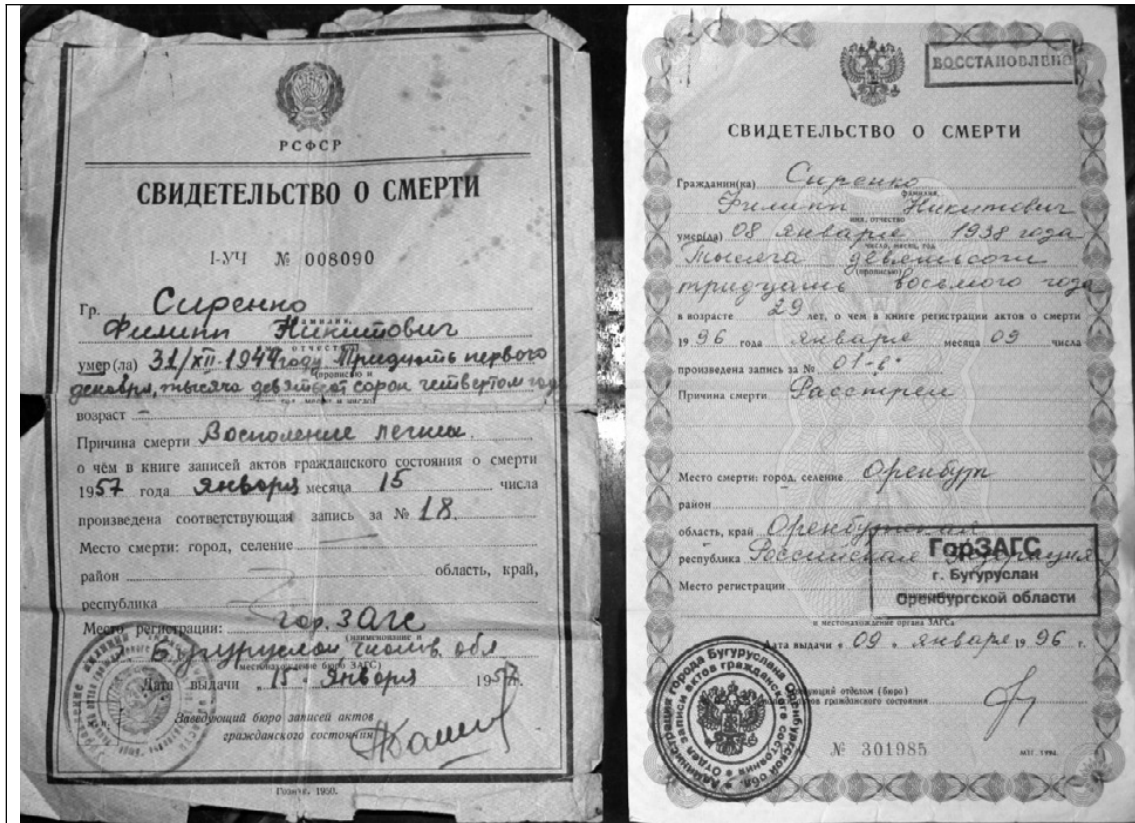 РСФСР
СВИДЕТЕЛЬСТВО О СМЕРТИ
I-УЧ № 008090
Гр. Сиренко
фамилия,
Филипп Никитович
отчество
умер(ла) 31/XII-1944 году Тридцать первого
(прописью и
декабря, тысяча девятьсот сорок четвертом году
возраст –
Причина смерти Восполение легких.
о чём в книге записей актов гражданского состояния о смерти
1957 года Января месяца 15 числа
произведена соответствующая запись за № 18.
Место смерти: город, селение
район область, край,
республика
Место регистрации: гор. ЗАГС
(наименование и
Бугуруслан обл
местонахождение бюро ЗАГС)
Дата выдачи „15" Января 1957г.
Заведующий бюро записей актов
гражданского состояния
Гознак. 1950.
ВОССТАНОВЛЕНО
СВИДЕТЕЛЬСТВО О СМЕРТИ
Гражданин(ка) Сиренко
фамилия,
Филипп Никитович
имя, отчество
умер(ла) 08 января 1938 года
число, месяц, год
Тысяча девятьсот
(прописью)
тридцать восьмого года
в возрасте 29 лет, о чем в книге регистрации актов о смерти
1996 года января месяца 09 числа
произведена запись за №
Причина смерти Расстрел
Место смерти: город, селение Оренбург
район
область, край Оренбургская
республика Российская Федерация
Место регистрации
ГорЗАГС
г. Бугуруслан
Оренбургской области
и местонахождение органа ЗАГСа
Дата выдачи « 09 » января 1996 г.
отделом (бюро)
гражданского состояния
№ 301985
Администрация города Бугуруслана Оренбургской обл. • Отдел записи актов гражданского состояния